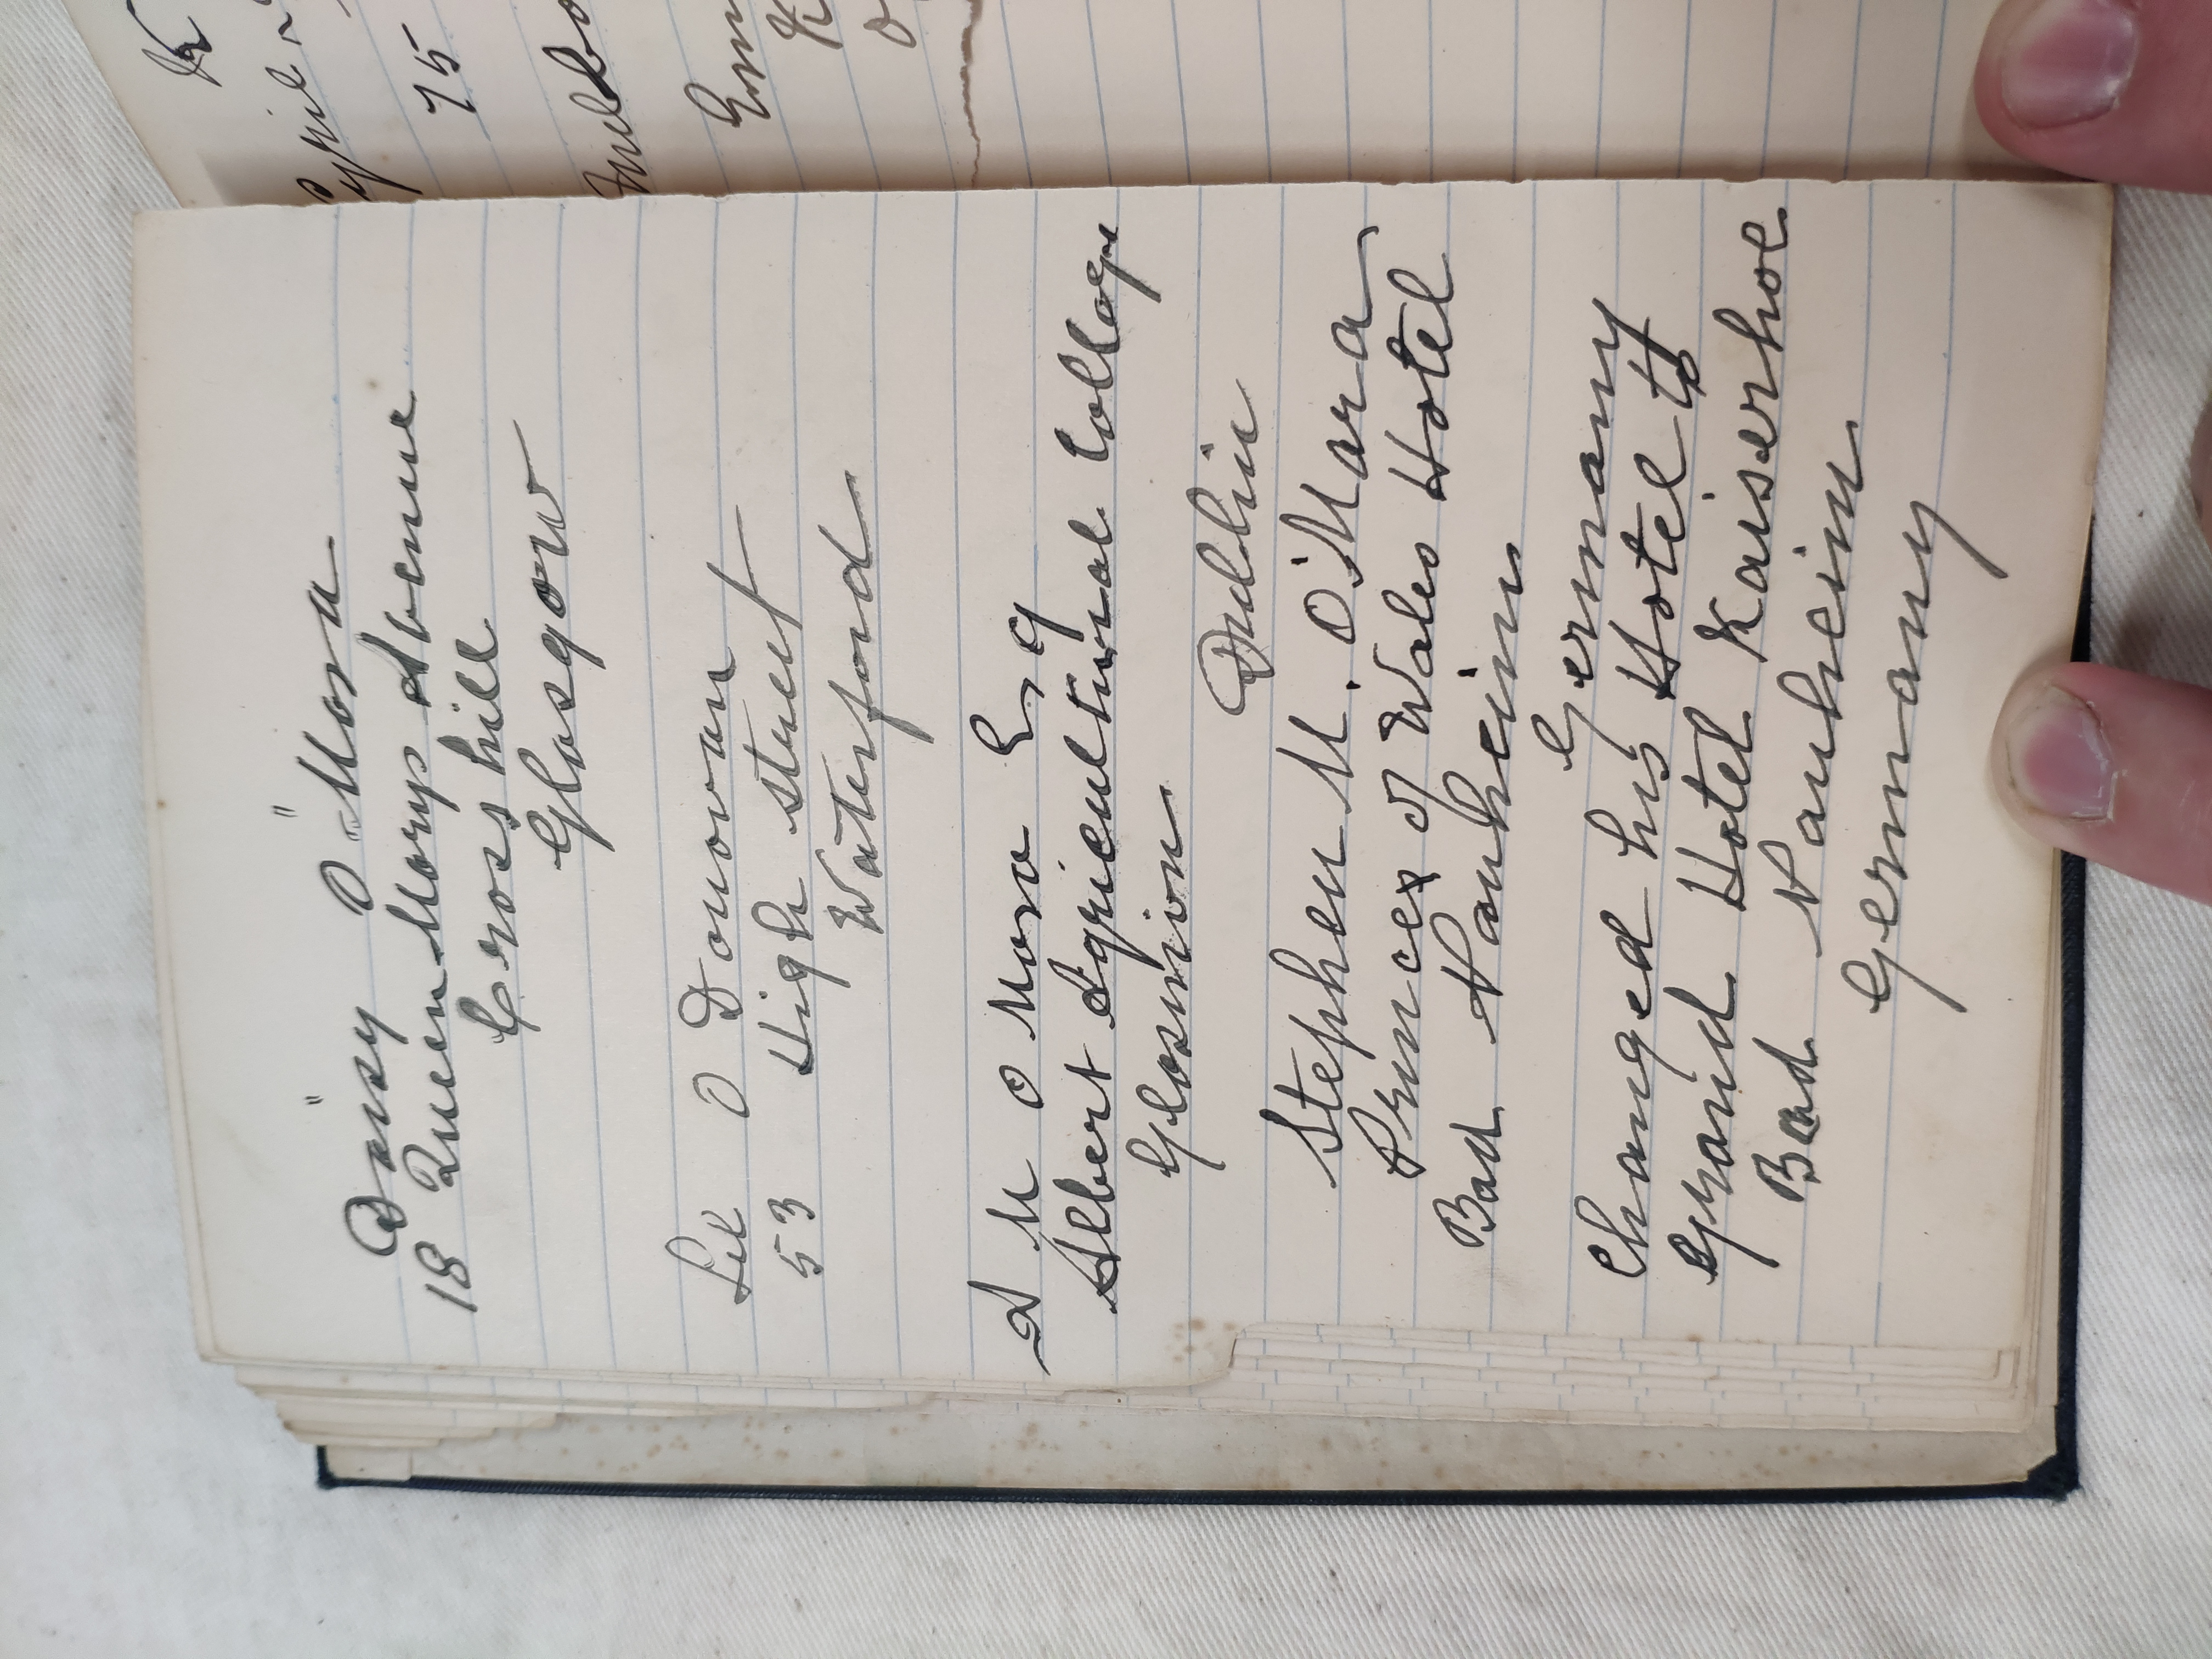 "Daisy" O"Mara
18 Queen Marys Avenue
Crosshill
Glasgow
Lil O Donovan
53 High street
Waterford
S M O Mara Esq
Albert Agricultural College
Glasnivin
Dublin
Stephen M. O'Mara
Princes of Wales Hotel
Bad Nauheim
Germany
Changed his Hotel to
Grand Hotel Kaiserhoe
Bad Nauheim
Germany
75